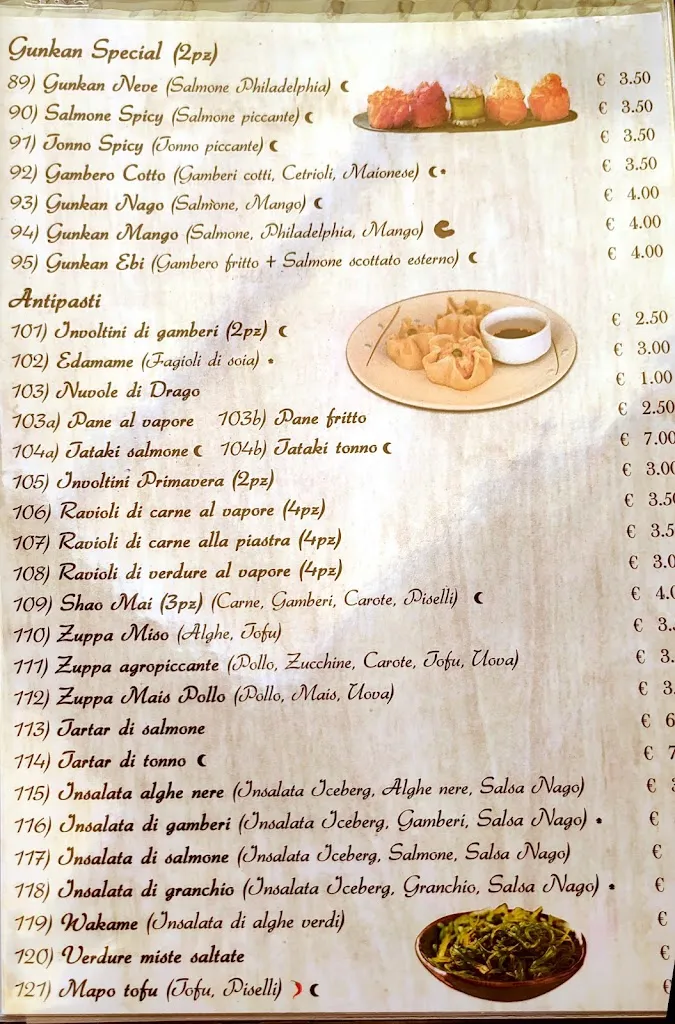 Gunkan Special (2pz)
89) Gunkan Neve (Salmone Philadelphia) € 3.50
90) Salmone Spicy (Salmone piccante) € 3.50
91) Tonno Spicy (Tonno piccante) € 3.50
92) Gambero Cotto (Gamberi cotti, Cetrioli, Maionese) € 3.50
93) Gunkan Nago (Salmone, Mango) € 4.00
94) Gunkan Mango (Salmone, Philadelphia, Mango) € 4.00
95) Gunkan Ebi (Gambero fritto + Salmone scottato esterno) € 4.00
Antipasti
101) Involtini di gamberi (2pz) € 2.50
102) Edamame (Fagioli di soia) € 3.00
103) Nuvole di Drago € 1.00
103a) Pane al vapore 103b) Pane fritto € 2.50
104a) Tataki salmone 104b) Tataki tonno € 7.00
105) Involtini Primavera (2pz) € 3.00
106) Ravioli di carne al vapore (4pz) € 3.50
107) Ravioli di carne alla piastra (4pz) € 3.5
108) Ravioli di verdure al vapore (4pz) € 3.0
109) Shao Mai (3pz) (Carne, Gamberi, Carote, Piselli) € 4.
110) Zuppa Miso (Alghe, Tofu) € 3.
111) Zuppa agropiccante (Pollo, Zucchine, Carote, Tofu, Uova) € 3.
112) Zuppa Mais Pollo (Pollo, Mais, Uova) € 3.
113) Tartar di salmone € 6
114) Tartar di tonno € 7
115) Insalata alghe nere (Insalata Iceberg, Alghe nere, Salsa Nago) €
116) Insalata di gamberi (Insalata Iceberg, Gamberi, Salsa Nago) €
117) Insalata di salmone (Insalata Iceberg, Salmone, Salsa Nago) €
118) Insalata di granchio (Insalata Iceberg, Granchio, Salsa Nago) €
119) Wakame (Insalata di alghe verdi) €
120) Verdure miste saltate €
121) Mapo tofu (Tofu, Piselli) €